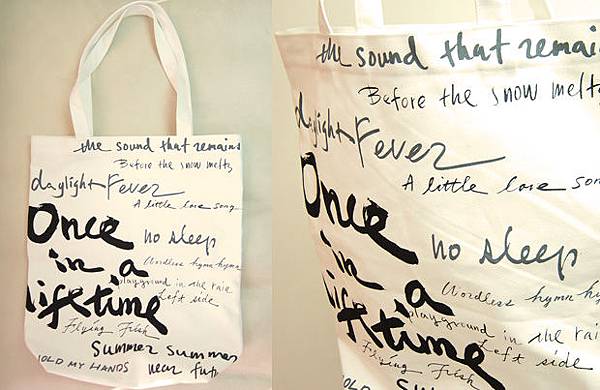 the sound that remains
Before the snow melts
daylight Fever
A little love song
Once
no sleep
in a
Wordless hymn hymn
playground in the rain
lifetime
Left side
Flying Fish
Summer Summer
HOLD MY HANDS near fut
the sound that remains
Before the snow melts
daylight Fever
A little love son
Once
no sleep
in a
Wordless hymn hy
playground in the rai
lifetime
Left side
Flying Fish
OLD Summer